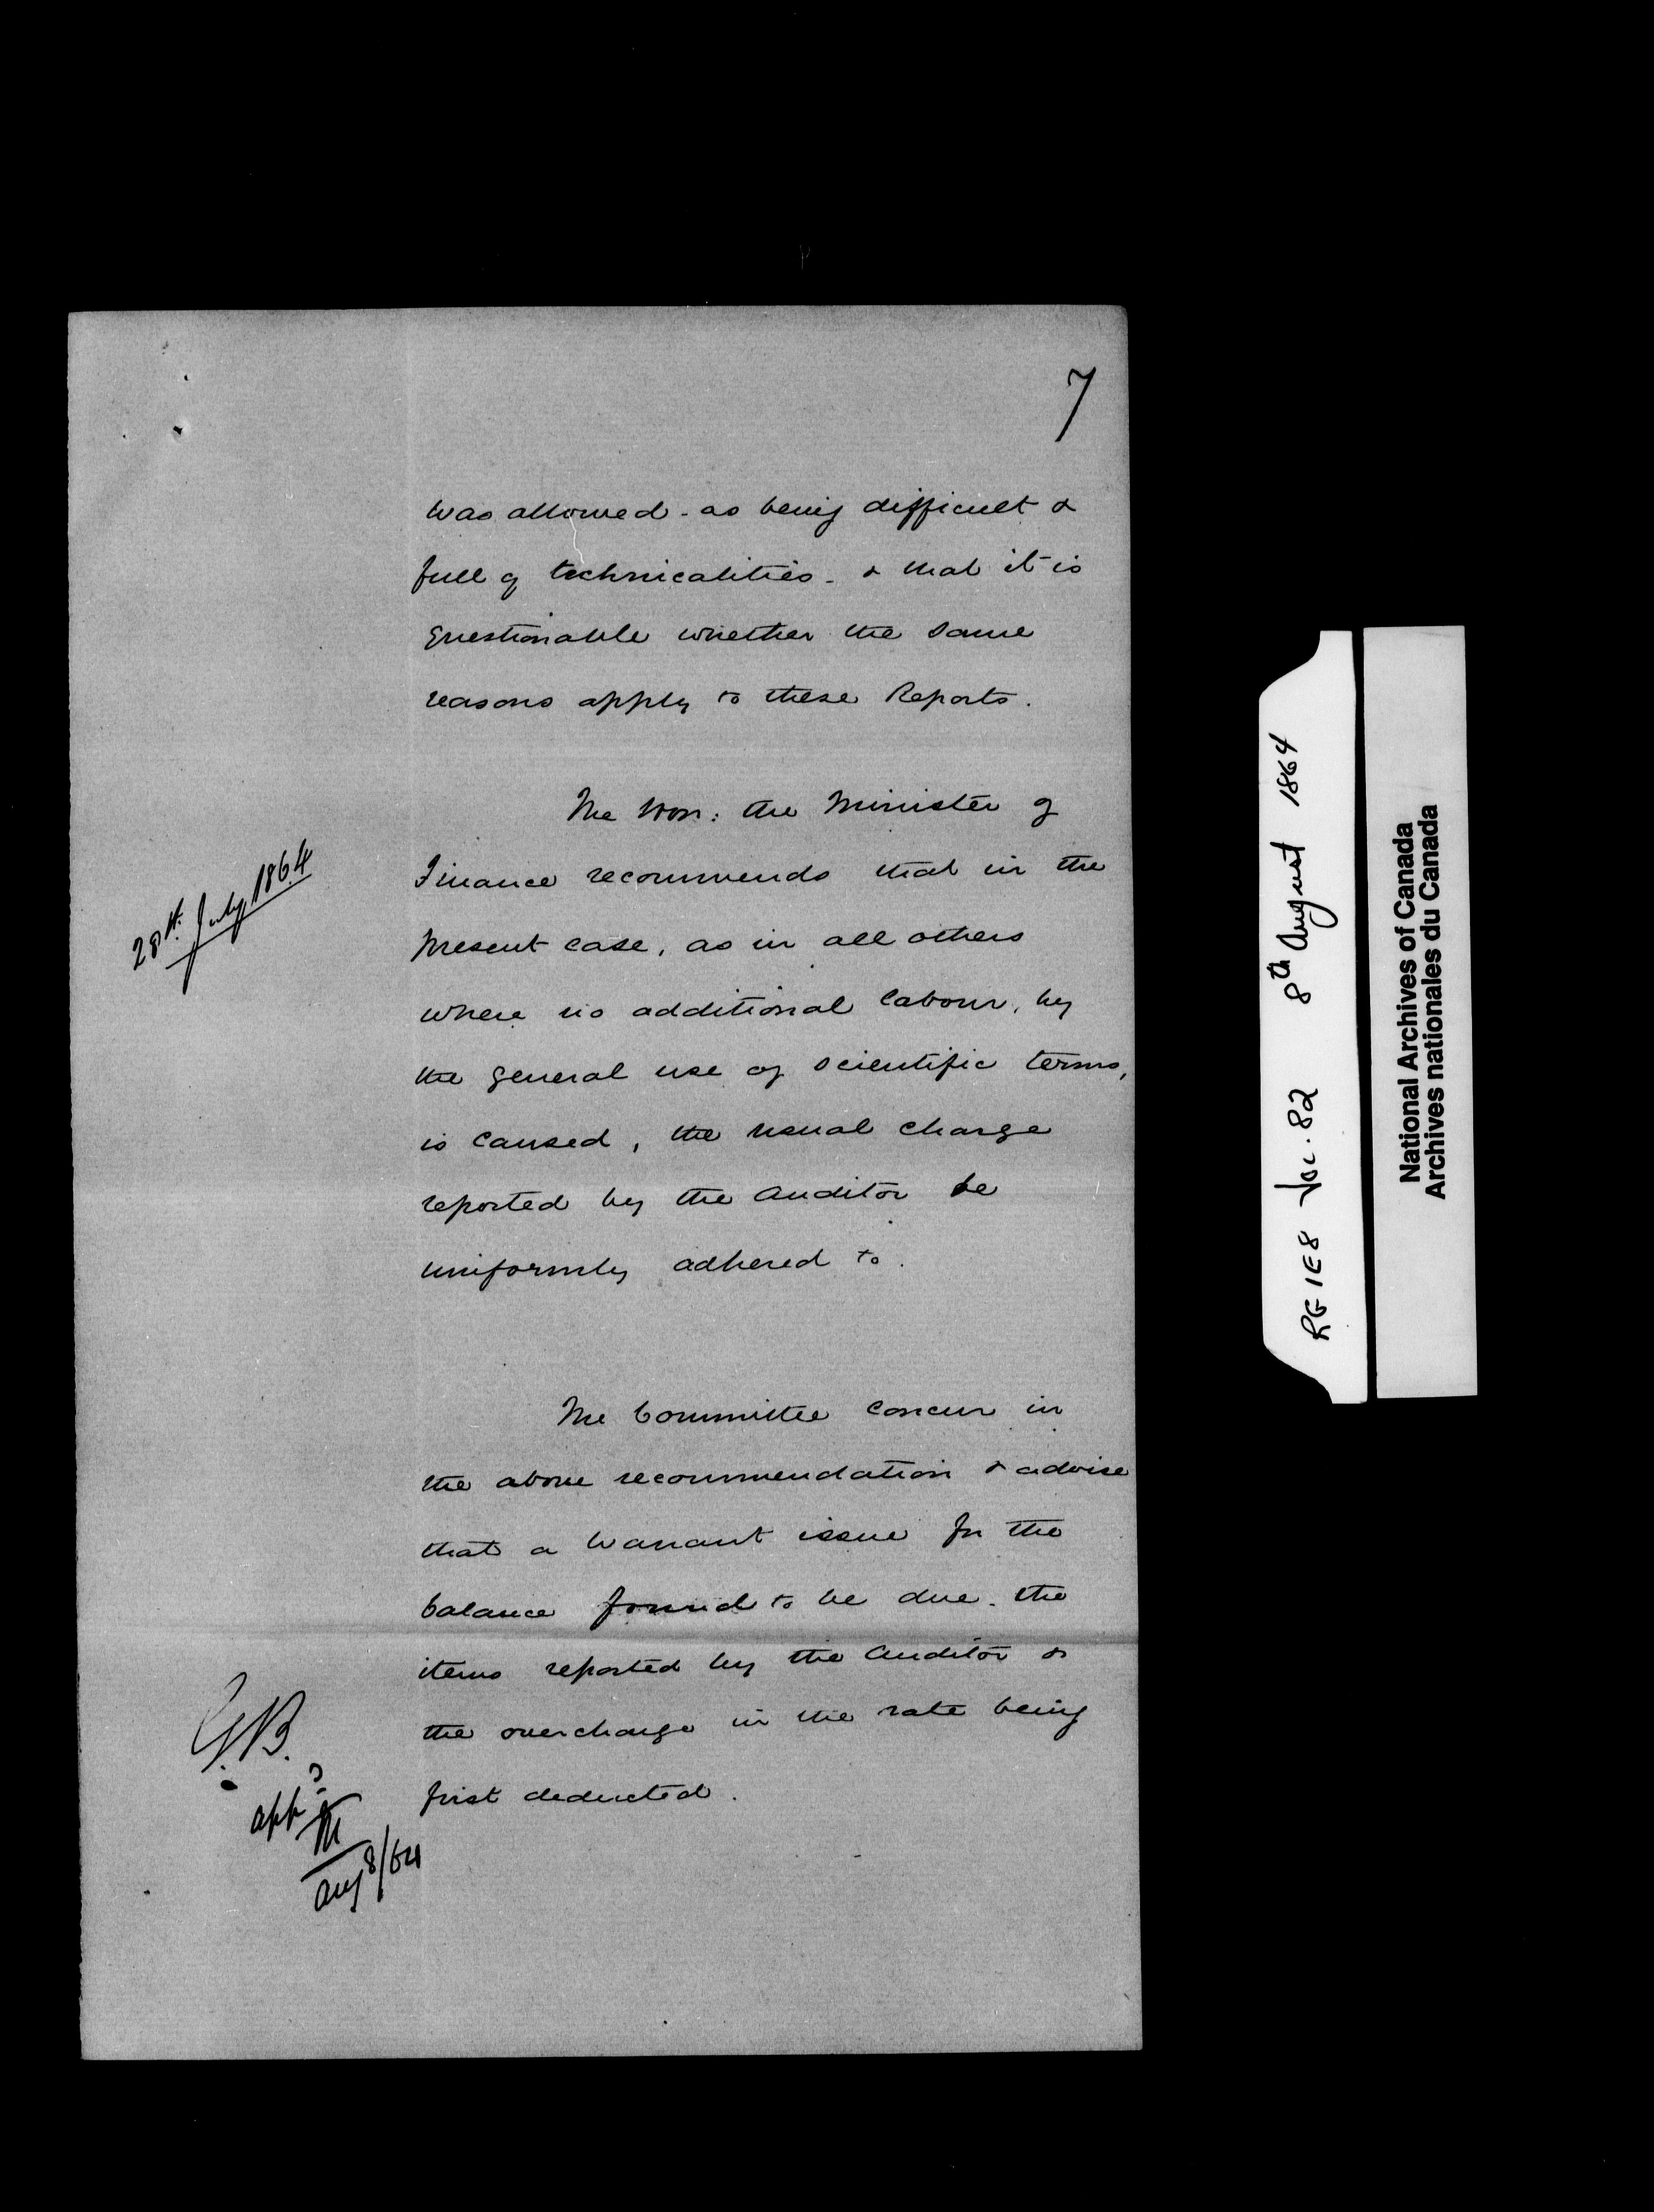 7
was allowed - as being difficult &
full of technicalities - & that it is
questionable whether the same
reasons apply to these Reports.
The Hon: the Minister of
Finance recommends that in the
present case, as in all others
where no additional labour, by
the general use of scientific terms,
is caused, the usual charge
reported by the Auditor be
uniformly adhered to.
28th July 1864
The Committee concur in
the above recommendation & advise
that a Warrant issue for the
balance found to be due. the
items reported by the Auditor &
the overcharge in the rate being
first deducted.
G.B.
appd
M
Aug 8/64
RG 1 E8 Vol. 82 8th August 1864
National Archives of Canada
Archives nationales du Canada